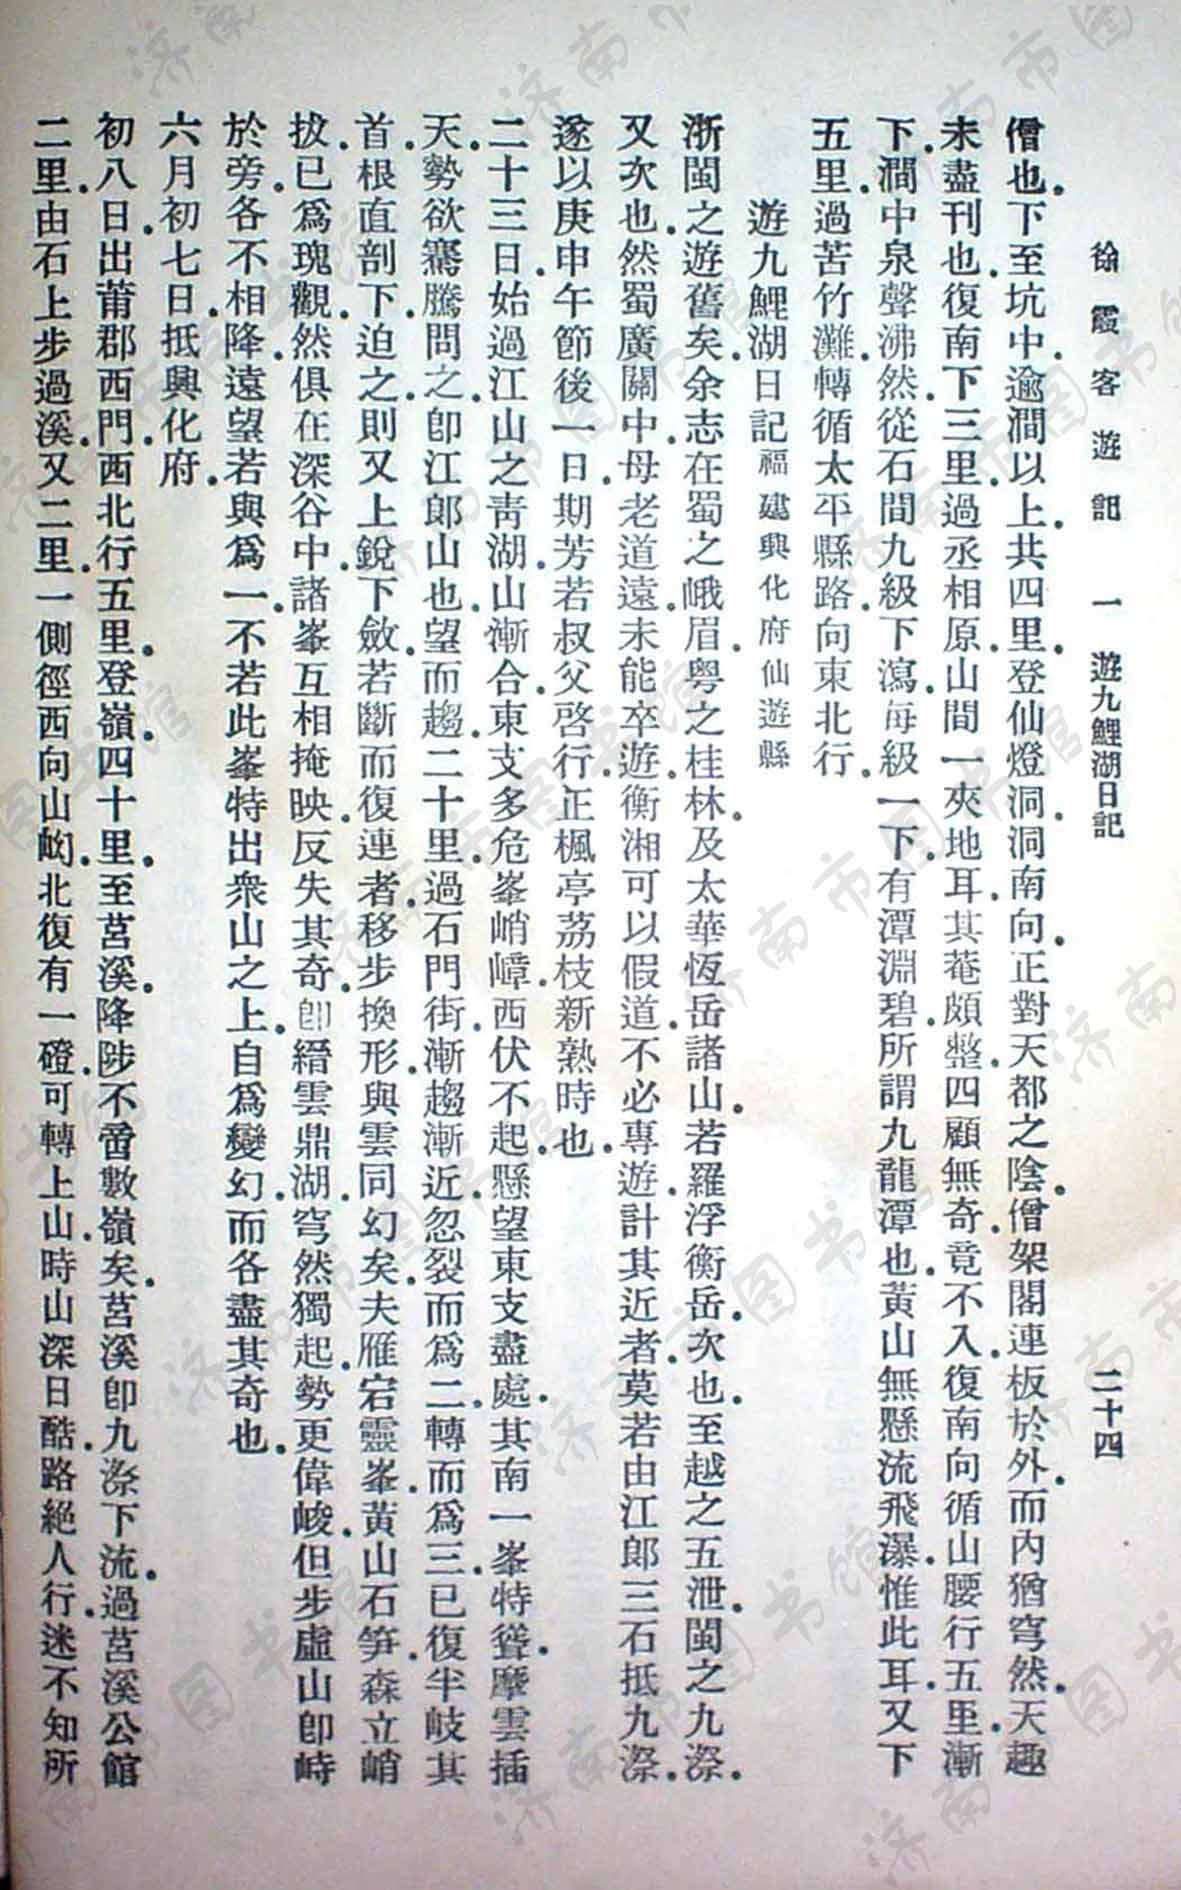 徐霞客遊記　一　遊九鯉湖日記　二十四
僧也．下至坑中．逾澗以上．共四里．登仙燈洞．洞南向．正對天都之陰．僧架閣連板於外．而內猶穹然．天趣
未盡刊也．復南下三里．過丞相原．山間一夾地耳．其菴頗整．四顧無奇．竟不入．復南向循山腰行五里．漸
下．澗中泉聲沸然．從石間九級下瀉．每級一下．有潭淵碧．所謂九龍潭也．黃山無懸流飛瀑．惟此耳．又下
五里．過苦竹灘．轉循太平縣路．向東北行．
遊九鯉湖日記福建興化府仙遊縣
浙閩之遊舊矣．余志在蜀之峨眉．粵之桂林．及太華恆岳諸山．若羅浮衡岳．次也．至越之五泄．閩之九漈．
又次也．然蜀廣關中．母老道遠．未能卒遊．衡湘可以假道．不必專遊．計其近者．莫若由江郎三石抵九漈．
遂以庚申午節後一日．期芳若叔父啓行．正楓亭荔枝新熟時也．
二十三日．始過江山之靑湖．山漸合．東支多危峯峭嶂．西伏不起．懸望東支盡處．其南一峯特聳．摩雲插
天．勢欲騫騰．問之．卽江郞山也．望而趨．二十里．過石門街．漸趨漸近．忽裂而爲二．轉而爲三．已復半岐其
首．根直剖下．迫之．則又上銳下斂．若斷而復連者．移步換形．與雲同幻矣．夫雁宕靈峯．黃山石笋．森立峭
拔．已爲瑰觀．然俱在深谷中．諸峯互相掩映．反失其奇．卽縉雲鼎湖．穹然獨起．勢更偉峻．但步虛山卽峙
於旁．各不相降．遠望若與爲一．不若此峯特出衆山之上．自爲變幻．而各盡其奇也．
六月初七日．抵興化府．
初八日．出莆郡西門．西北行五里．登嶺．四十里．至莒溪．降陟不啻數嶺矣．莒溪卽九漈下流．過莒溪公館
二里．由石上步過溪．又二里．一側徑西向山坳．北復有一磴．可轉上山．時山深日酷．路絕人行．迷不知所